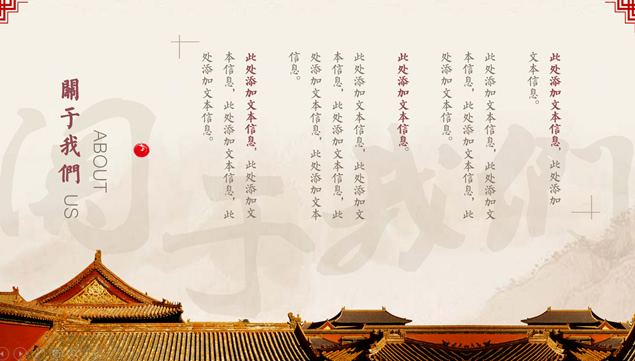 此处添加文本信息，此处添加
文本信息。
此处添加文本信息，此处添加文
本信息，此处添加文本信息，此
处添加文本信息。
此处添加文本信息。
此处添加文本信息，此处添加文
本信息，此处添加文本信息，此
处添加文本信息，此处添加文本
信息。
此处添加文本信息，此处添加文
本信息，此处添加文本信息，此
处添加文本信息。
ABOUT US
關于我們
于我们